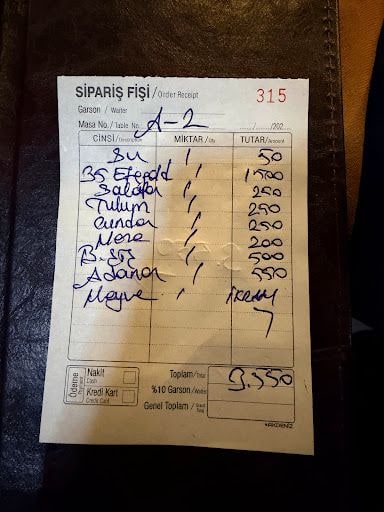 SİPARİŞ FİŞİ / Order Receipt 315
Garson / Waiter
Masa No. / Table No. A-2 ....../....../202...
CİNSİ / Description MİKTAR / Qty TUTAR / Amount
Su 1 50
35 Efegold 1 1500
Salata 1 250
Tulum 1 250
Cunda 1 250
Meze 1 200
B. 1 500
Adana 1 550
Meyve 1 ikram
Ödeme Payment
Nakit Cash
Kredi Kart Credit Card
Toplam / Total 3.550
%10 Garson / Waiter
Genel Toplam / Grand Total